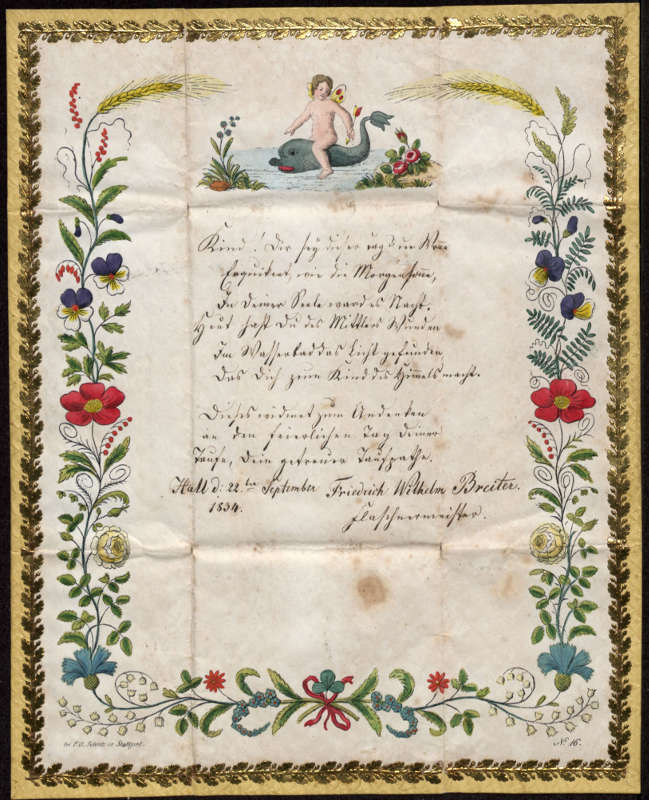 Kind! Dir sey dieser Tag zur Wonne
Erquickend, wie die Morgensonne,
In Deiner Seele ward es Nacht.
Heut hast Du des Mittlers Wunden
Im Wasserbad das Licht gefunden
Das Dich zum Kind des Himmels macht.
Dieses widmet zum Andenken
an den feierlichen Tag deiner
Taufe, Dein getreuer Taufpathe.
Hall d: 22.ten September Friedrich Wilhelm Breiter.
1834. Flaschnermeister.
bei F. G. Schulz in Stuttgart. No. 16.